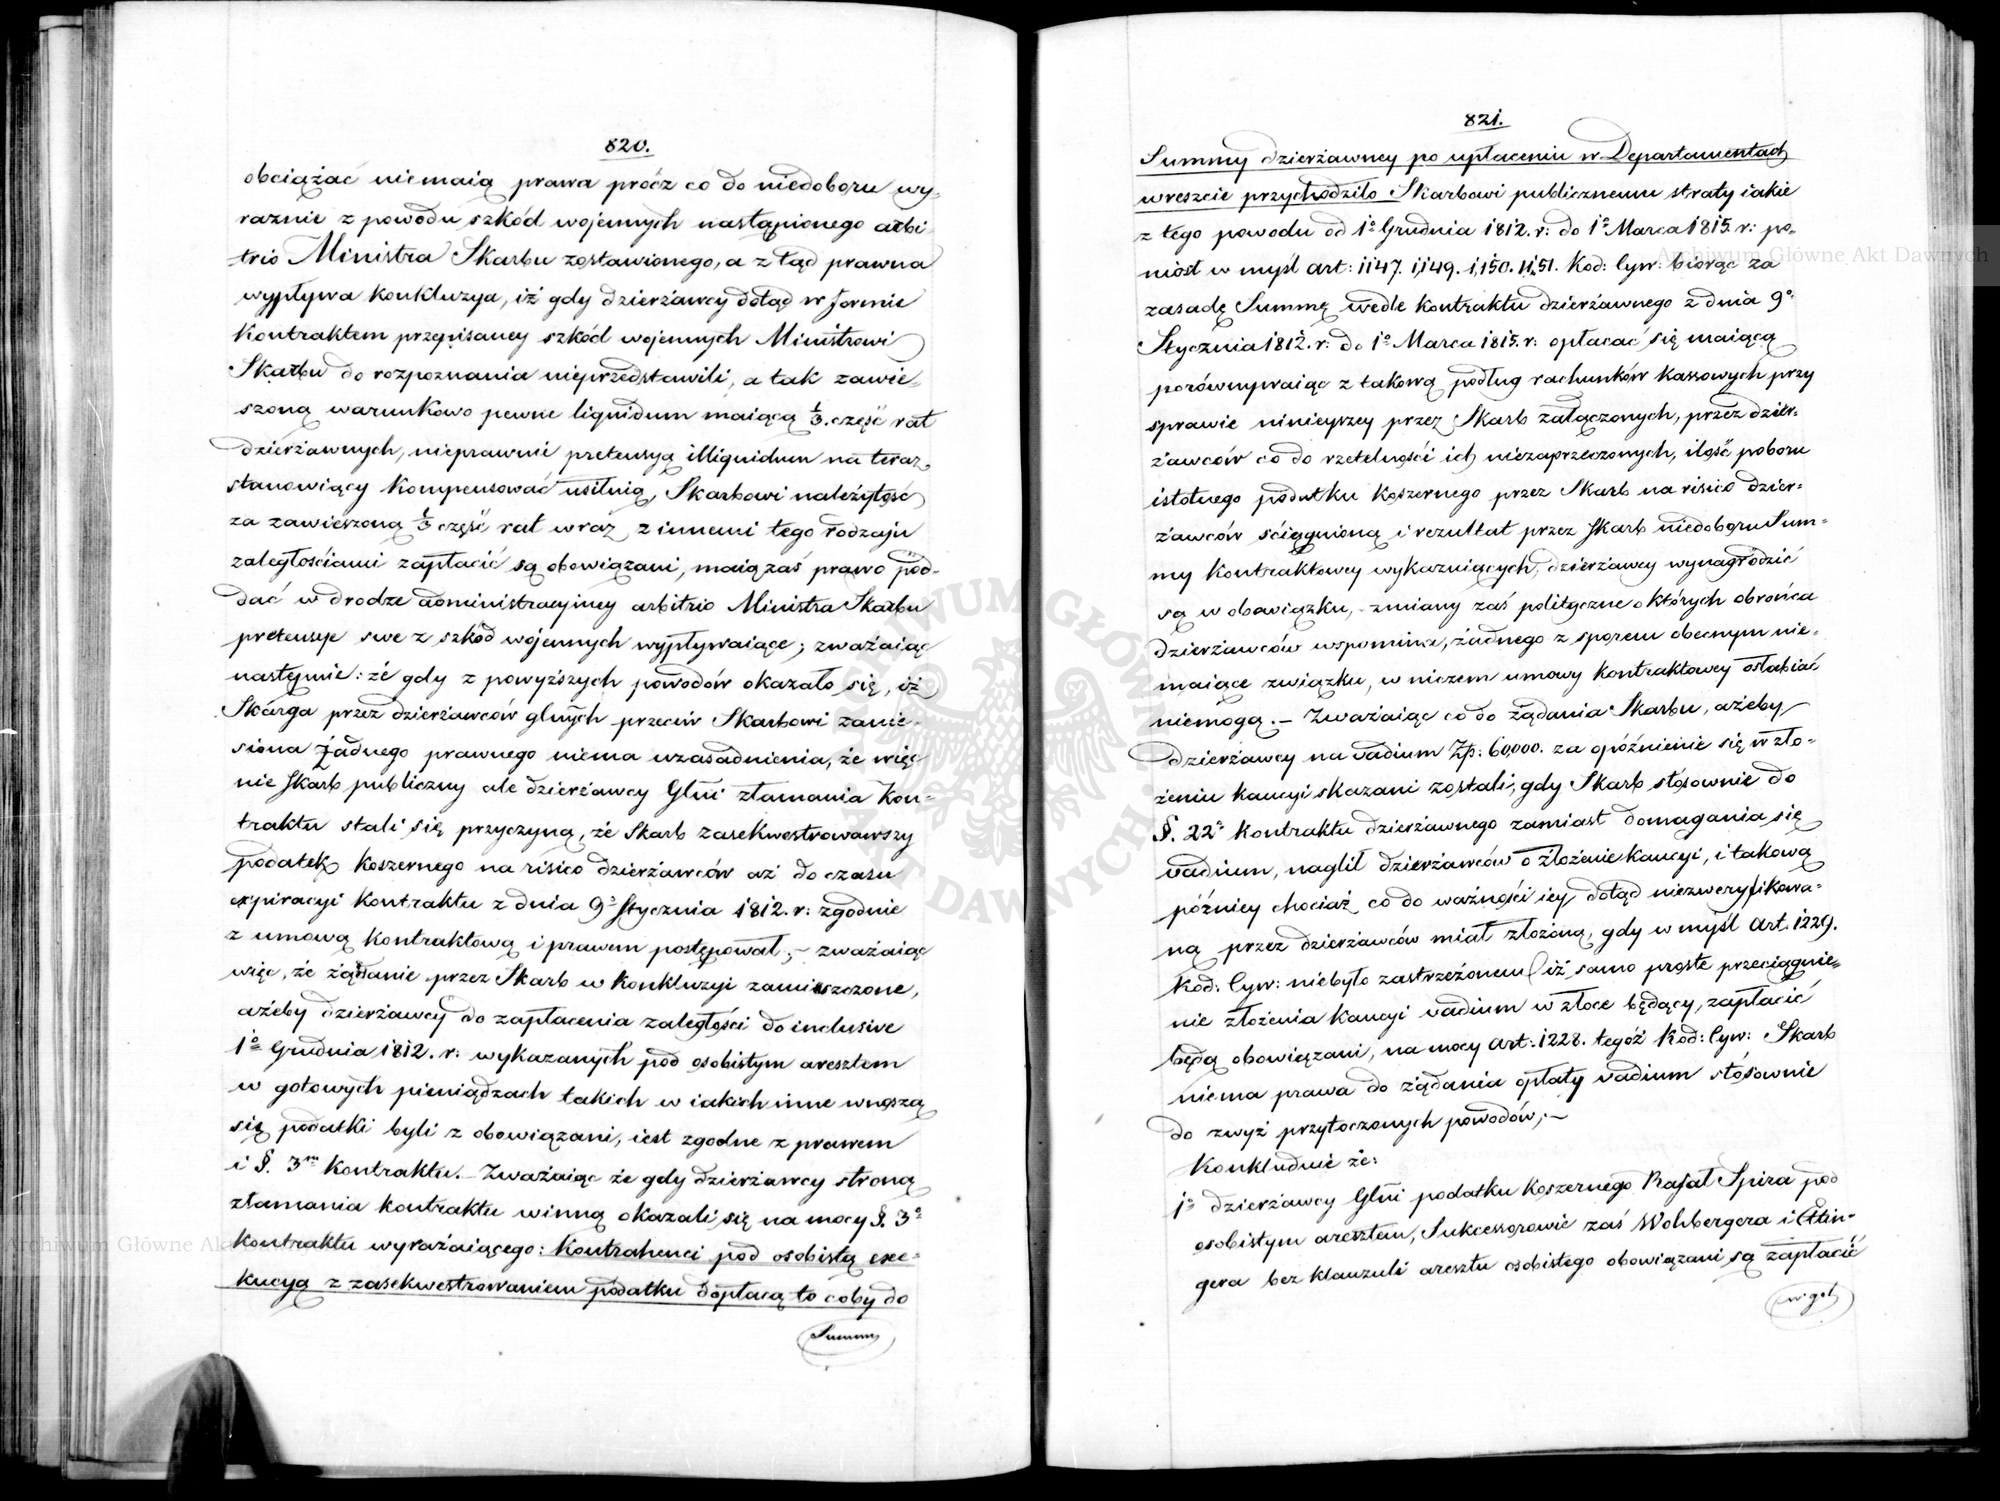 820.
obciążać niemaią prawa prócz co do niedoboru wy-
raznie z powodu szkód wojennych nastąpionego arbi-
trio Ministra Skarbu zostawionego, a z tąd prawna
wypływa konkluzya, iż gdy dzierżawcy dotąd w formie
Kontraktem przepisaney szkód wojennych Ministrowi
Skarbu do rozpoznania nieprzedstawili, a tak zawie-
szoną warunkowo pewne liquidum maiącą 1/3. część rat
dzierżawnych, nieprawnie pretensyą illiquidum na teraz
stanowiący kompensować usiłuią, Skarbowi należytość
za zawieszoną 1/3 część rat wraz z innemi tego rodzaju
zaległościami zapłacić są obowiązani, maią zaś prawo pod-
dać w drodze administracyiney arbitrio Ministra Skarbu
pretensye swe z szkód wojennych wypływaiące; zważaiąc
następnie: że gdy z powyższych powodów okazało się, iż
Skarga przez dzierżawców głnych przeciw Skarbowi zanie-
siona żadnego prawnego niema uzasadnienia, że więc
nie Skarb publiczny ale dzierżawcy Głni złamania Kon-
traktu stali się przyczyną, że Skarb zasekwestrowawszy
podatek koszernego na risico dzierżawców aż do czasu
expiracyi Kontraktu z dnia 9° Stycznia 1812. r: zgodnie
z umową kontraktową i prawem postępował; – zważaiąc
więc, że żądanie przez Skarb w Konkluzyi zamieszczone,
ażeby dzierżawcy do zapłacenia zaległości do inclusive
1° Grudnia 1812. r: wykazanych pod osobistym aresztem
w gotowych pieniądzach takich w iakich inne wnoszą
się podatki byli z obowiązani, iest zgodne z prawem
i §. 3m Kontraktu. – Zważaiąc że gdy dzierżawcy stroną
złamania kontraktu winną okazali się na mocy §. 3°
Kontraktu wyrażaiącego: Kontrahenci pod osobistą exe-
kucyą z zasekwestrowaniem podatku dopłacą to coby do
Summy
821.
Summy dzierżawney po upłaceniu w Departamentach
wreszcie przychodziło Skarbowi publicznemu straty iakie
z tego powodu od 1° Grudnia 1812. r: do 1° Marca 1815. r: po-
niósł w myśl art: 1147. 1149. 1150. 1151. Kod: Cyw: biorąc za
zasadę Summę wedle kontraktu dzierżawnego z dnia 9°
Stycznia 1812. r: do 1° Marca 1815. r: opłacać się maiącą
porównywaiąc z takową podług rachunków Kassowych przy
sprawie ninieyszey przez Skarb załączonych, przez dzier-
żawców co do rzetelności ich niezaprzeczonych, ilość poboru
istotnego podatku koszernego przez Skarb na risico dzier-
żawców ściągnioną i rezultat przez Skarb niedoboru Sum-
my Kontraktowey wykazuiących, dzierżawcy wynagrodzić
są w obowiązku, – zmiany zaś polityczne o których obrońca
dzierżawców wspomina, żadnego z sporem obecnym nie-
maiące związku, w niczem umowy kontraktowey osłabiać
niemogą. – Zważaiąc co do żądania Skarbu, ażeby
dzierżawcy na vadium Złp: 60,000. za opóźnienie się w zło-
żeniu kaucyi skazani zostali, gdy Skarb stósownie do
§. 22° kontraktu dzierżawnego zamiast domagania się
vadium, naglił dzierżawców o złożenie kaucyi, i takową
późniey chociaż co do ważności iey dotąd niezweryfikowa-
ną przez dzierżawców miał złożoną, gdy w myśl art. 1229.
Kod: Cyw: niebyło zastrzeżonem iż samo proste przeciągnie-
nie złożenia kaucyi vadium w złoce będący, zapłacić
będą obowiązani, na mocy art: 1228. tegóż Kod: Cyw: Skarb
niema prawa do żądania opłaty vadium stósownie
do zwyż przytoczonych powodów; –
Konkluduie że:
1° dzierżawcy Głni podatku koszernego Rafał Spira pod
osobistym aresztem, Sukcessorowie zaś Wohbergera i Ettin-
gera bez klauzuli aresztu osobistego obowiązani są zapłacić
w got
Archiwum Główne Akt Dawnych
Archiwum Główne Akt Dawnych
ARCHIWUM GŁÓWNE AKT DAWNYCH